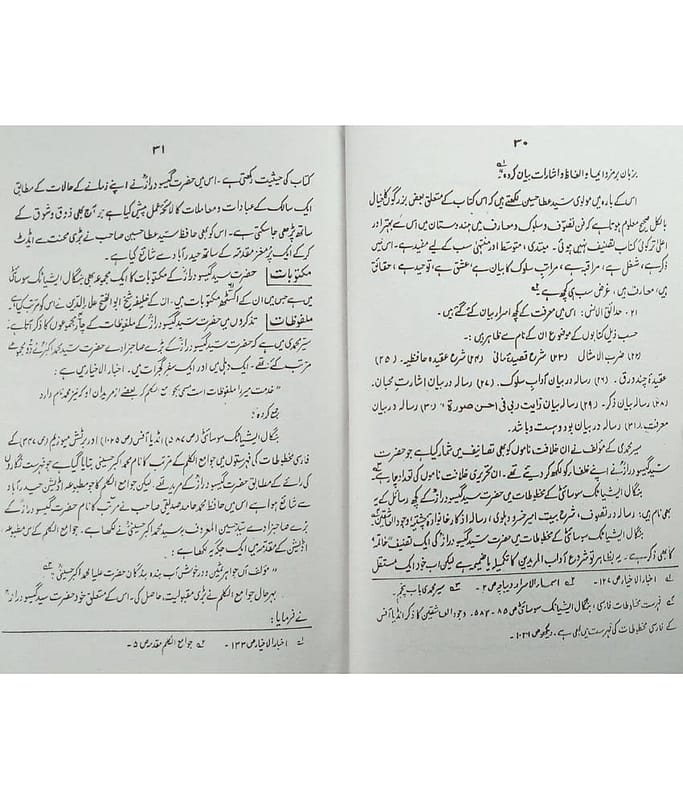 ۳۰
بزبان برمز و ایما و الفاظ و اشارات بیان کرده؎
اس کے بارہ میں مولوی سید عطا حسین لکھتے ہیں کہ اس کتاب کے متعلق بعض بزرگوں کا خیال
بالکل صحیح معلوم ہوتا ہے کہ فن تصوف و سلوک و معارف میں ہندوستان میں اس سے بہتر اور
اعلیٰ تر کوئی کتاب تصنیف نہیں ہوئی۔ مبتدی، متوسط اور منتہی سب کے لیے مفید ہے۔ اس میں
ذکر ہے، شغل ہے، مراقبہ ہے، مراتب سلوک کا بیان ہے، عشق ہے، توحید ہے، حقائق
ہیں، معارف ہیں، غرض سب ہی کچھ ہے؎
۲۱۔ حدائق الانس: اس میں معرفت کے کچھ اسرار بیان کئے گئے ہیں۔
حسب ذیل کتابوں کے موضوع ان کے نام سے ظاہر ہیں:۔
(۲۲) ضرب الامثال (۲۳) شرح قصیدۂ مانی (۲۴) شرح عقیدہ حافظیہ۔ (۲۵)
عقیدۂ چند ورق۔ (۲۶) رسالہ در بیان آداب سلوک۔ (۲۷) رسالہ در بیان اشارت محبان۔
(۲۸) رسالہ بیان ذکر۔ (۲۹) رسالہ بیان رأیت ربی فی احسن صورة (۳۰) رسالہ در بیان
معرفت (۳۱) رسالہ در بیان بود و ہست و باشد۔
سیر محمدی کے مؤلف نے ان خلافت ناموں کو بھی تصانیف میں شمار کیا ہے جو حضرت
سید گیسو درازؒ نے اپنے خلفاء کو لکھ کر دیئے تھے۔ ان تحریری خلافت ناموں کی تعداد چار ہے؎
بنگال ایشیاٹک سوسائٹی کے مخطوطات میں حضرت سید گیسو درازؒ کے کچھ رسائل کے یہ
بھی نام ہیں: رسالہ در تصوف، شرح بیت امیر خسرو دہلوی، رسالہ اذکار خانوادۂ چشتیہ، وجود العاشقین؎
بنگال ایشیاٹک سوسائٹی کے مخطوطات میں حضرت سید گیسو درازؒ کی ایک تصنیف خاتمہ
کا بھی ذکر ہے۔ یہ بظاہر تو شرح آداب المریدین کا تکمیلہ یا ضمیمہ ہے لیکن اب خود ایک مستقل
؎ اخبار الاخیار ص ۱۲۷۔ ؎ اسمار الاسرار دیباچہ ص ۲۔ ؎ سیر محمدی باب پنجم۔
؎ فہرست مخطوطات فارسی، بنگال ایشیاٹک سوسائٹی ص ۸۵۔ ۵۸۲۔ وجود العاشقین کا ذکر انڈیا آفس
کے فارسی مخطوطات کی فہرست میں بھی ہے۔ دیکھو ص ۱۰۲۶۔
۳۱
کتاب کی حیثیت رکھتی ہے۔ اس میں حضرت گیسو درازؒ نے اپنے زمانے کے حالات کے مطابق
ایک سالک کے عبادات و معاملات کا لائحۂ عمل پیش کیا ہے جو آج بھی ذوق و شوق کے
ساتھ پڑھی جا سکتی ہے۔ اس کو بھی حافظ سید عطا حسین صاحب نے بڑی محنت سے ایڈٹ
کر کے ایک پُر مغز مقدمہ کے ساتھ حیدرآباد سے شائع کیا ہے۔
مکتوبات حضرت سید گیسو درازؒ کے مکتوبات کا ایک مجموعہ بھی بنگال ایشیاٹک سوسائٹی
میں ہے جس میں ان کے اکسٹھ مکتوبات ہیں۔ ان کے خلیفہ شیخ ابوالفتح علاء الدین نے اس کو مرتب کیا ہے۔
ملفوظات تذکروں میں حضرت سید گیسو درازؒ کے ملفوظات کے چار مجموعوں کا ذکر آتا ہے۔
سیر محمدی میں ہے کہ حضرت سید گیسو درازؒ کے بڑے صاحبزادے سید محمد اکبرؒ نے دو مجموعے
مرتب کئے تھے۔ ایک دہلی میں اور ایک سفر گجرات میں۔ اخبار الاخیار میں ہے:
”خدمت میر را ملفوظات است مسمی بجوامع الکلم کہ بعضے از مریدان او کہ نیز محمد نام دارد
جمع کردہ:“
بنگال ایشیاٹک سوسائٹی (ص ۵۸۷) انڈیا آفس (ص ۱۰۲۵) اور برٹش میوزیم (ص ۳۴۷) کے
فارسی مخطوطات کی فہرستوں میں جوامع الکلم کے مرتب کا نام محمد اکبر حسینی بتایا گیا ہے جو فہرست نگاروں
کی رائے کے مطابق حضرت گیسو درازؒ کے مرید تھے۔ لیکن جوامع الکلم کا جو مطبوعہ اڈیشن حیدرآباد
سے شائع ہوا ہے اس میں حافظ محمد حامد صدیقی صاحب نے مرتب کا نام حضرت گیسو درازؒ کے
بڑے صاحبزادے سید حسین المعروف بہ سید محمد اکبر حسینیؒ نے لکھا ہے۔ جوامع الکلم کے اس مطبوعہ
اڈیشن کے مقدمہ میں ایک جگہ یہ لکھا ہے:
”مؤلف آں جواہر ثمین و درر خوش آب بندہ بندگان حضرت علیا محمد اکبر حسینیؒ“؎
بہرحال جوامع الکلم نے بڑی مقبولیت حاصل کی۔ اس کے متعلق خود حضرت سید گیسو درازؒ
نے فرمایا:
؎ اخبار الاخیار ص ۱۳۳۔ ؎ جوامع الکلم مقدمہ ص ۵۔